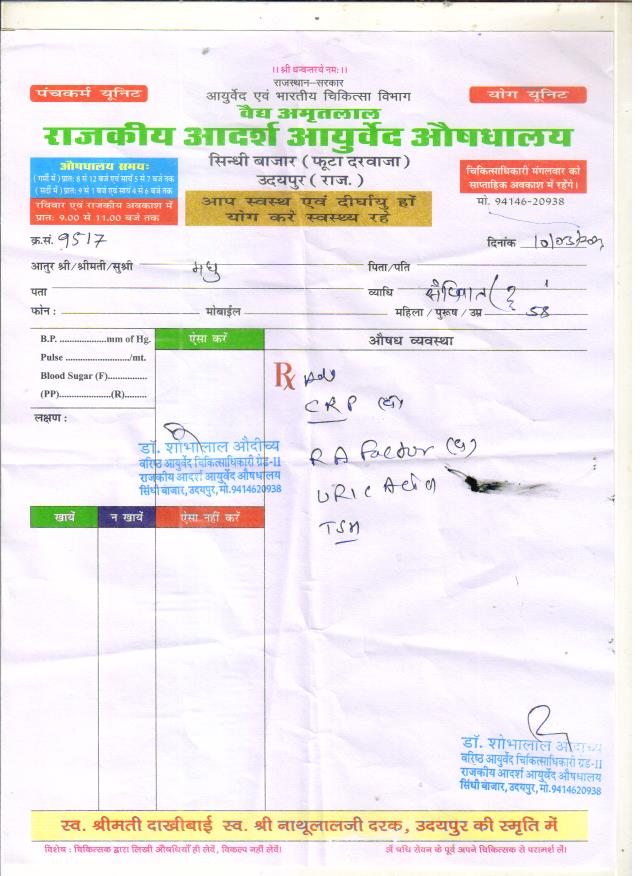 ।। श्री धन्वन्तरये नमः ।।
राजस्थान–सरकार
पंचकर्म यूनिट
आयुर्वेद एवं भारतीय चिकित्सा विभाग
योग यूनिट
वैद्य अमृतलाल
राजकीय आदर्श आयुर्वेद औषधालय
औषधालय समयः
( गर्मी में ) प्रात: 8 से 12 बजे एवं सायं 5 से 7 बजे तक
( सर्दी में ) प्रात: 9 से 1 बजे एवं सायं 4 से 6 बजे तक
रविवार एवं राजकीय अवकाश में
प्रात: 9.00 से 11.00 बजे तक
सिन्धी बाजार ( फूटा दरवाजा )
उदयपुर ( राज. )
आप स्वस्थ एवं दीर्घायु हों
योग करें स्वस्थ्य रहे
चिकित्साधिकारी मंगलवार को
साप्ताहिक अवकाश में रहेंगे।
मो. 94146-20938
क्र.सं. 9517
दिनांक 10/03/
आतुर श्री/श्रीमती/सुश्री मधु पिता/पति
पता व्याधि
फोन : मोबाईल महिला / पुरूष / उम्र 58
B.P. ...................mm of Hg.
Pulse ........................../mt.
Blood Sugar (F)................
(PP).....................(R).........
लक्षण :
ऐसा करें
औषध व्यवस्था
Rx Adv
CRP
RA Factor
URIC Acid
डॉ. शोभालाल औदीच्य
वरिष्ठ आयुर्वेद चिकित्साधिकारी ग्रेड-II
राजकीय आदर्श आयुर्वेद औषधालय
सिंधी बाजार, उदयपुर, मो.9414620938
खायें न खायें ऐसा नहीं करें
डॉ. शोभालाल औदीच्य
वरिष्ठ आयुर्वेद चिकित्साधिकारी ग्रेड-II
राजकीय आदर्श आयुर्वेद औषधालय
सिंधी बाजार, उदयपुर, मो.9414620938
स्व. श्रीमती दाखीबाई स्व. श्री नाथूलालजी दरक, उदयपुर की स्मृति में
विशेष : चिकित्सक द्वारा लिखी औषधियाँ ही लेवें, विकल्प नहीं लेवें।
सेवन के पूर्व अपने चिकित्सक से परामर्श लें।